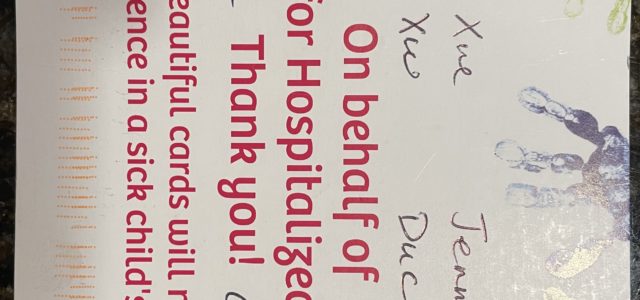 Xue Jenn
Duc
On behalf of
for Hospitalized
Thank you!
eautiful cards will
ence in a sick child's